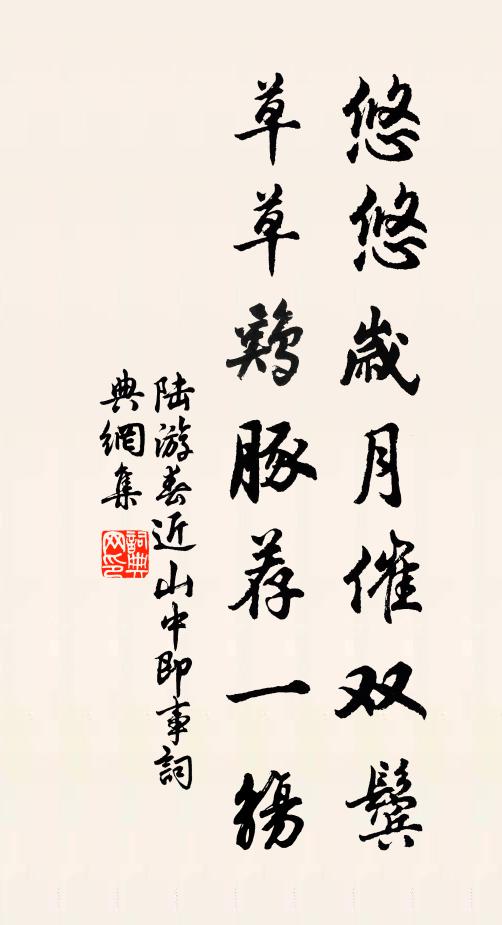 悠悠歲月催双鬢
草草鷄豚荐一觴
陆游春近山中即事詞
典網集
詞典网印